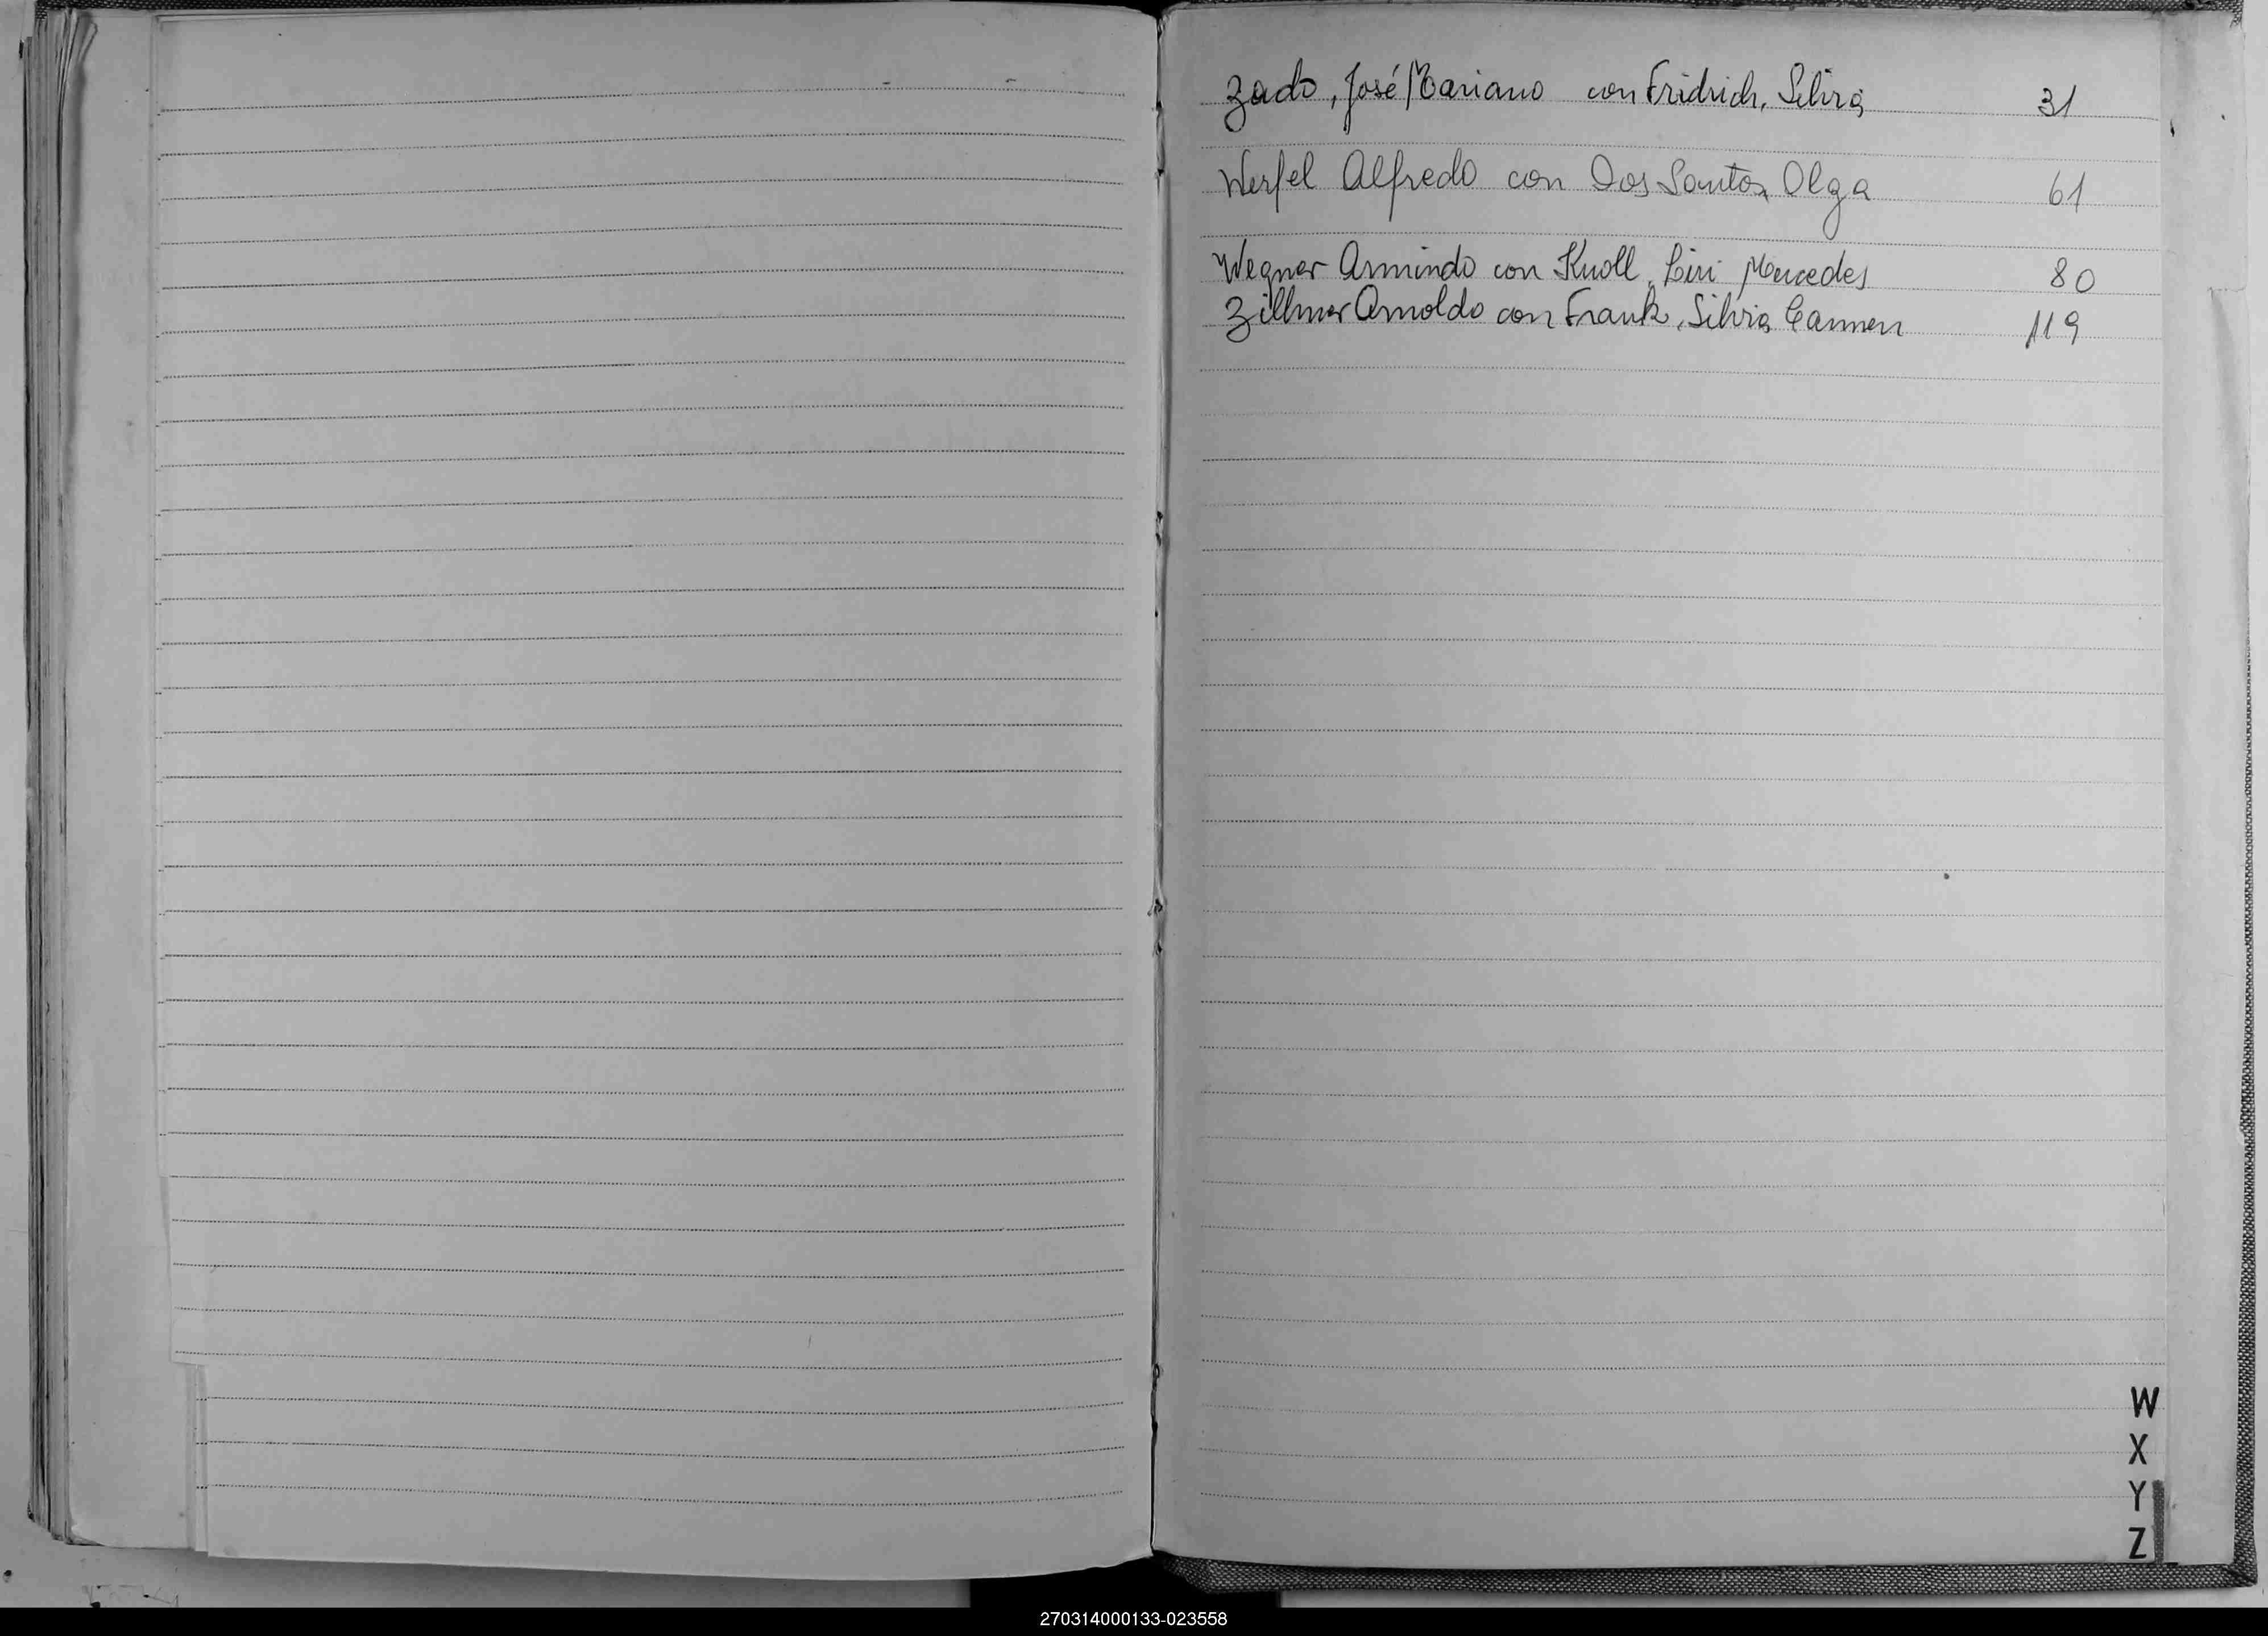 Zado, José Mariano con Fridrich, Silvia 31
Werfel Alfredo con Dos Santos, Olga 61
Wegner Armindo con Knoll, Mercedes 80
Zillmer Arnoldo con Frank, Silvia Carmen 119
W
X
Y
Z
270314000133-023558